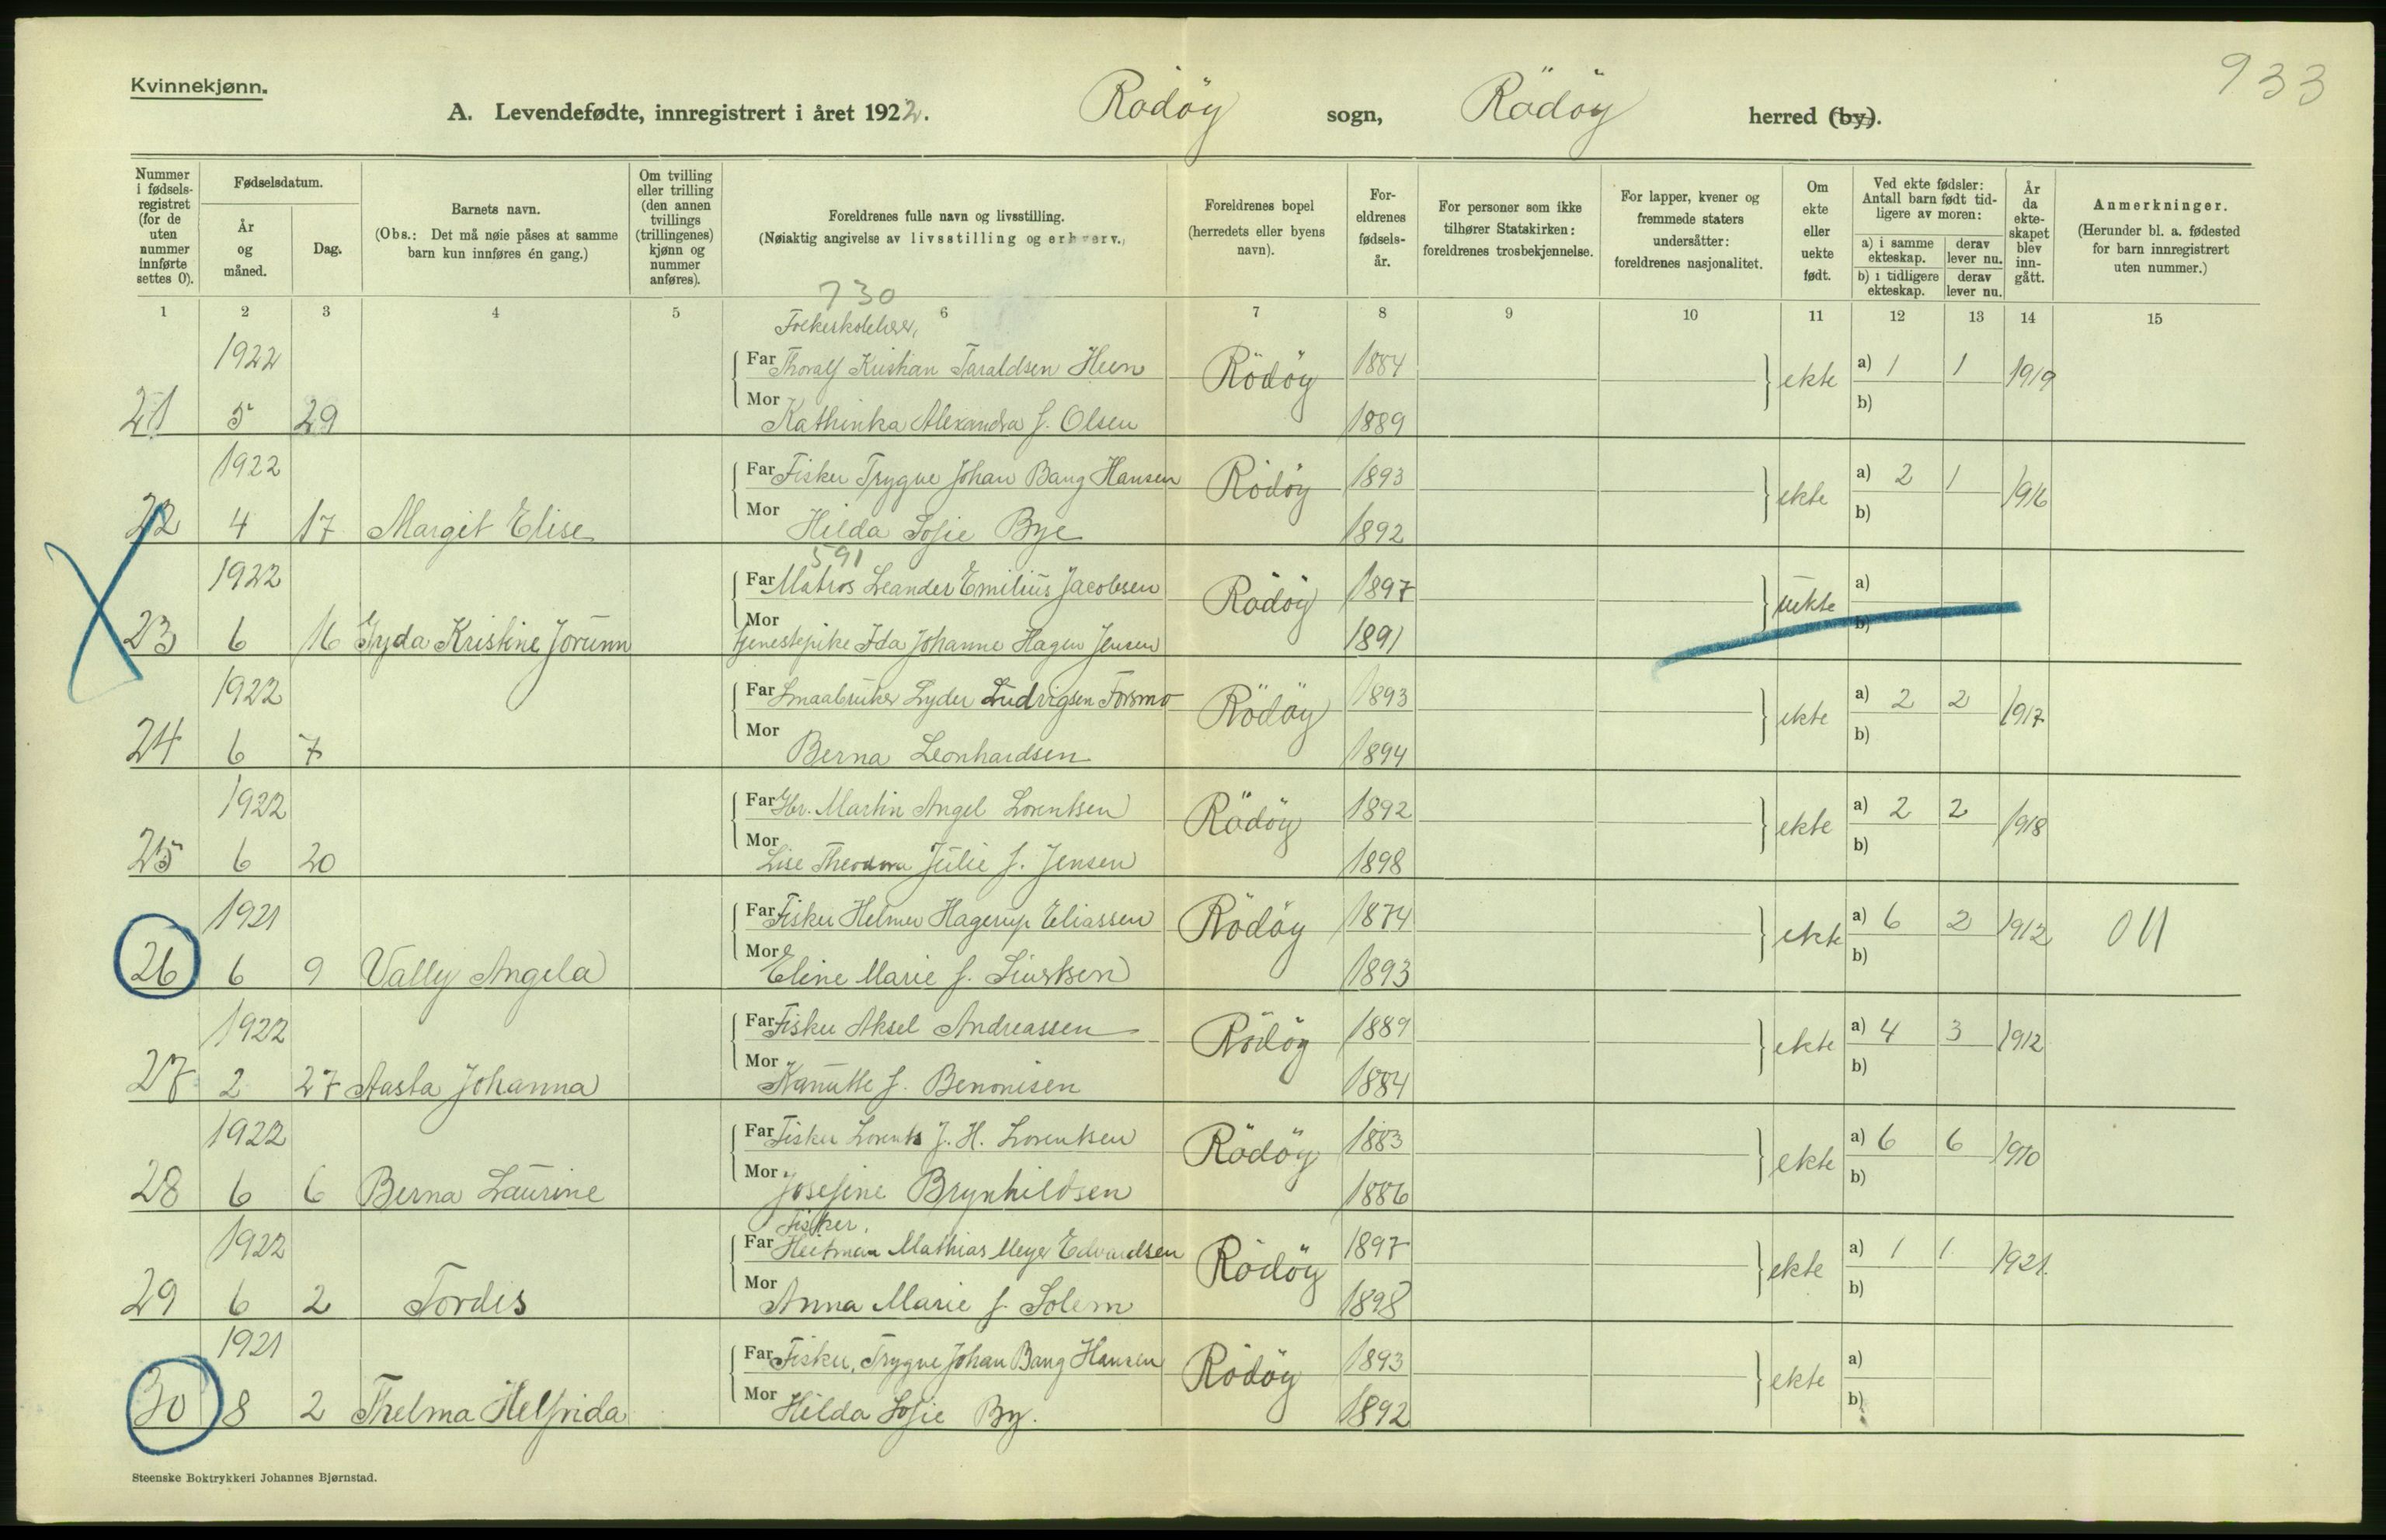 933
Kvinnekjønn.
A. Levendefødte, innregistrert i året 1922. Rödöy sogn, Rödöy herred (by).
Nummer i fødsels-registret (for de uten nummer innførte settes 0).
Fødselsdatum.
År og måned.
Dag.
Barnets navn.
(Obs.: Det må nøie påses at samme barn kun innføres én gang.)
Om tvilling eller trilling (den annen tvillings (trillingenes) kjønn og nummer anføres).
Foreldrenes fulle navn og livsstilling.
(Nøiaktig angivelse av livsstilling og erhverv.)
Foreldrenes bopel (herredets eller byens navn).
For-eldrenes fødsels-år.
For personer som ikke tilhører Statskirken: foreldrenes trosbekjennelse.
For lapper, kvener og fremmede staters undersåtter: foreldrenes nasjonalitet.
Om ekte eller uekte født.
Ved ekte fødsler: Antall barn født tid-ligere av moren:
a) i samme ekteskap. derav lever nu.
b) i tidligere ekteskap. derav lever nu.
År da ekte-skapet blev inn-gått.
Anmerkninger.
(Herunder bl. a. fødested for barn innregistrert uten nummer.)
1 2 3 4 5 6 7 8 9 10 11 12 13 14 15
730
Folkeskolelærer,
1922 Far Thoralf Kristian Taraldsen Heen Rödöy 1884 ekte a) 1 1 1919
21 5 29 Mor Kathinka Alexandra f. Olsen 1889 b)
1922 Far Fisker Trygve Johan Bang Hansen Rödöy 1893 ekte a) 2 1 1916
22 4 17 Margit Elise Mor Hilda Sofie Bye 1892 b)
591
1922 Far Matros Leander Emilius Jacobsen Rödöy 1897 uekte a)
23 6 16 Gyda Kristine Jorunn Mor Tjenestepike Ida Johanne Hagen Jensen 1891 b)
1922 Far Smaabruker Lyder Ludvigsen Forsmo Rödöy 1893 ekte a) 2 2 1917
24 6 7 Mor Berna Leonhardsen 1894 b)
1922 Far Gbr. Martin Angel Lorentsen Rödöy 1892 ekte a) 2 2 1918
25 6 20 Mor Lise Theodora Julie f. Jensen 1898 b)
1921 Far Fisker Helmer Hagerup Eliassen Rödöy 1874 ekte a) 6 2 1912 011
26 6 9 Vally Angela Mor Eline Marie f. 1893 b)
1922 Far Fisker Aksel Andreassen Rödöy 1889 ekte a) 4 3 1912
27 2 27 Aasta Johanna Mor Kanutte f. Benonisen 1884 b)
1922 Far Fisker Lorents J. H. Lorentsen Rödöy 1883 ekte a) 6 6 1910
28 6 6 Berna Laurine Mor Josefine Brynhildsen 1886 b)
Fisker,
1922 Far Heitman Mathias Meyer Edvardsen Rödöy 1897 ekte a) 1 1 1921.
29 6 2 Tordis Mor Anna Marie f. Solem 1898 b)
1921 Far Fisker, Trygve Johan Bang Hansen Rödöy 1893 ekte a)
30 8 2 Thelma Helfrida Mor Hilda Sofie By. 1892 b)
Steenske Boktrykkeri Johannes Bjørnstad.